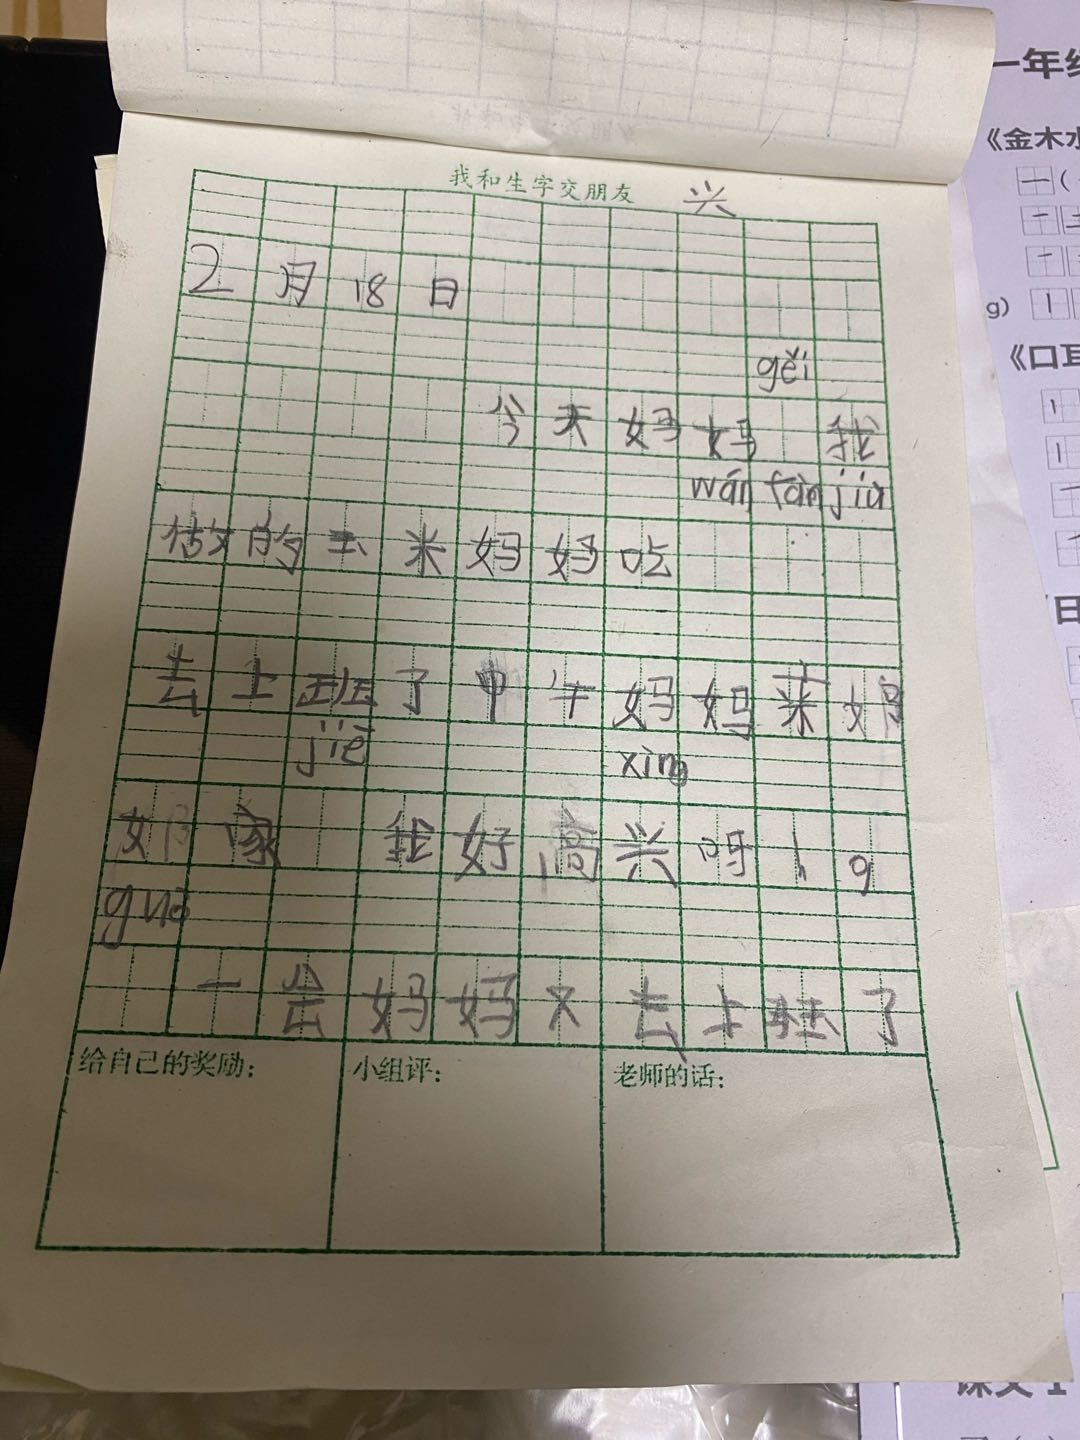 我和生字交朋友 兴
2月18日
gěi
今天妈妈 我
wán fàn jiù
做的玉米妈妈吃
去上班了中午妈妈来
jiē xìng
家 我好高兴呀！
guò
一会妈妈又去上班了
给自己的奖励：
小组评：
老师的话：
一年级
《金木水
一(
g)
《口耳
日
课文1